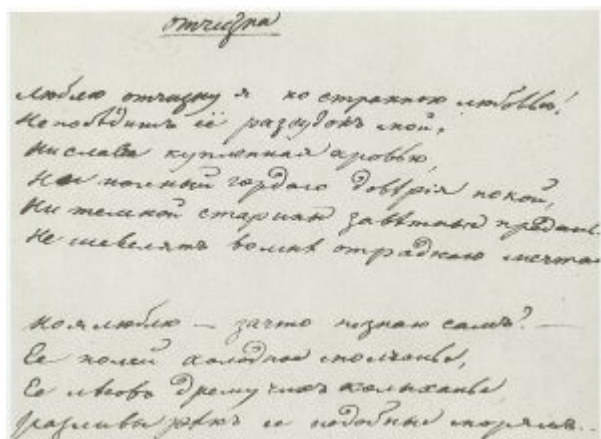 Отчизна
Люблю отчизну я но странною любовью!
Не побѣдитъ её разсудокъ мой,
Ни слава купленная кровью,
Ни полный гордаго довѣрія покой,
Ни темной старины завѣтные предань
Не шевелятъ во мнѣ отраднаго мечта
Но я люблю — за что незнаю самъ? —
Ее полей холодное молчанье,
Ее лѣсовъ дремучихъ колыханье
Разливы рѣкъ ее подобные морямъ..